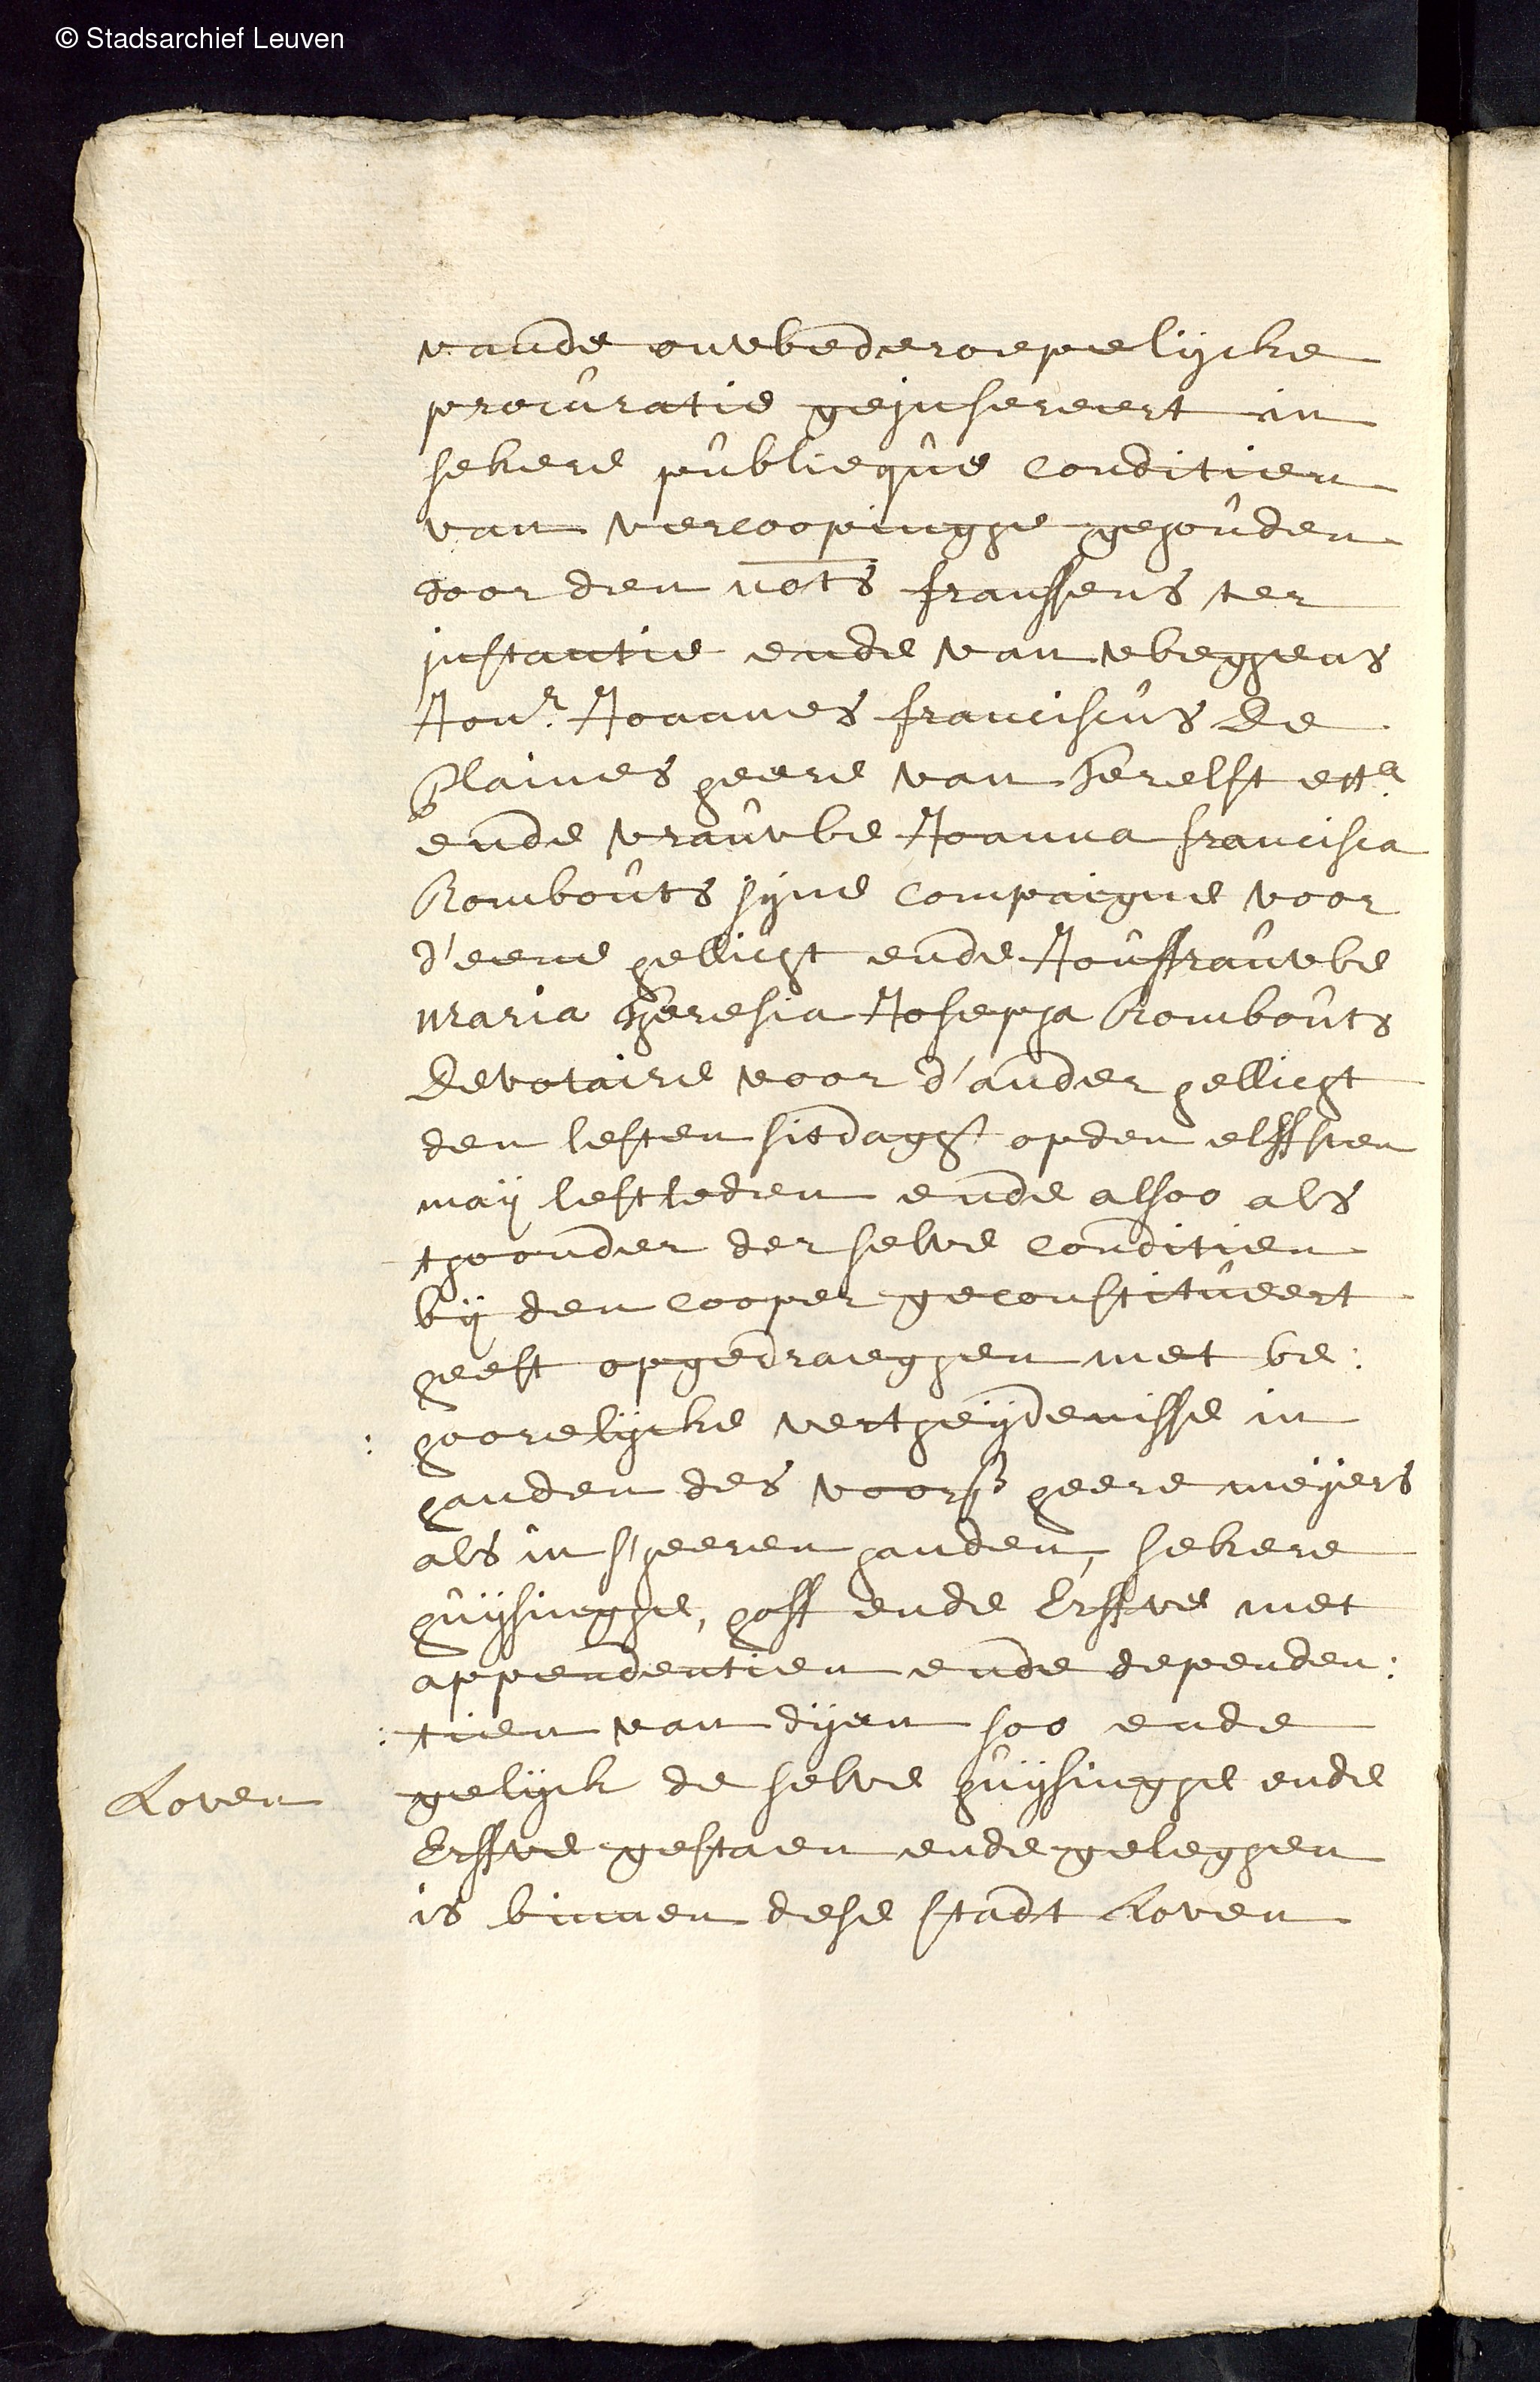 © Stadsarchief Leuven
vande onwederoepelijcke
procuratie gejnsereert in
sekere publieque Conditien
van vercoopinghe gehouden
door den not̅s franssens ter
jnstantie ende van weghens
Jonr. Joannes franciscus De
Plaines heere van Terelst etta.
ende vrauwe Joanna francisca
Rombouts sijne Compaigne voor
d'eene hellicht ende Jouffrauwe
Maria Theresia Josepha Rombouts
Devotaire voor d'ander hellicht
den lesten sitdagh opden elffsten
maij lestleden ende alsoo als
thoonder der selve Conditien
bij den Cooper geconstitueert
heeft opgedraeghen met be:
: hoorelijcke vertheijdenisse in
handen des voors heere meijers
als in sheeren handen, sekere
huijsinghe, hoff ende Erffve met
appendentien ende dependen:
: tien van dijen soo ende
Loven
gelijck de selve huijsinghe ende
Erffve gestaen ende geleghen
is binnen dese stadt Loven